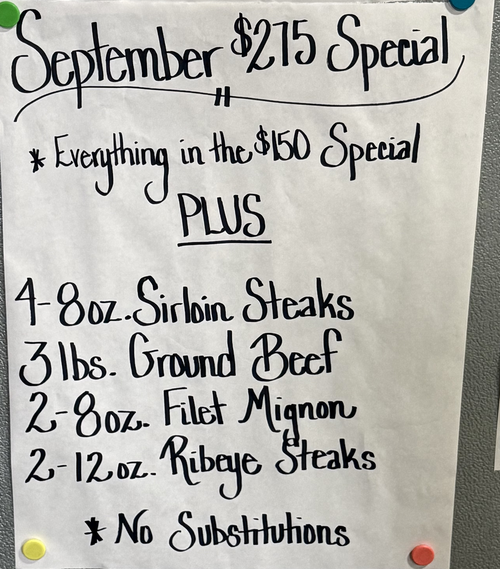 September $275 Special
* Everything in the $150 Special
PLUS
4-8oz. Sirloin Steaks
3 lbs. Ground Beef
2-8oz. Filet Mignon
2-12oz. Ribeye Steaks
* No Substitutions